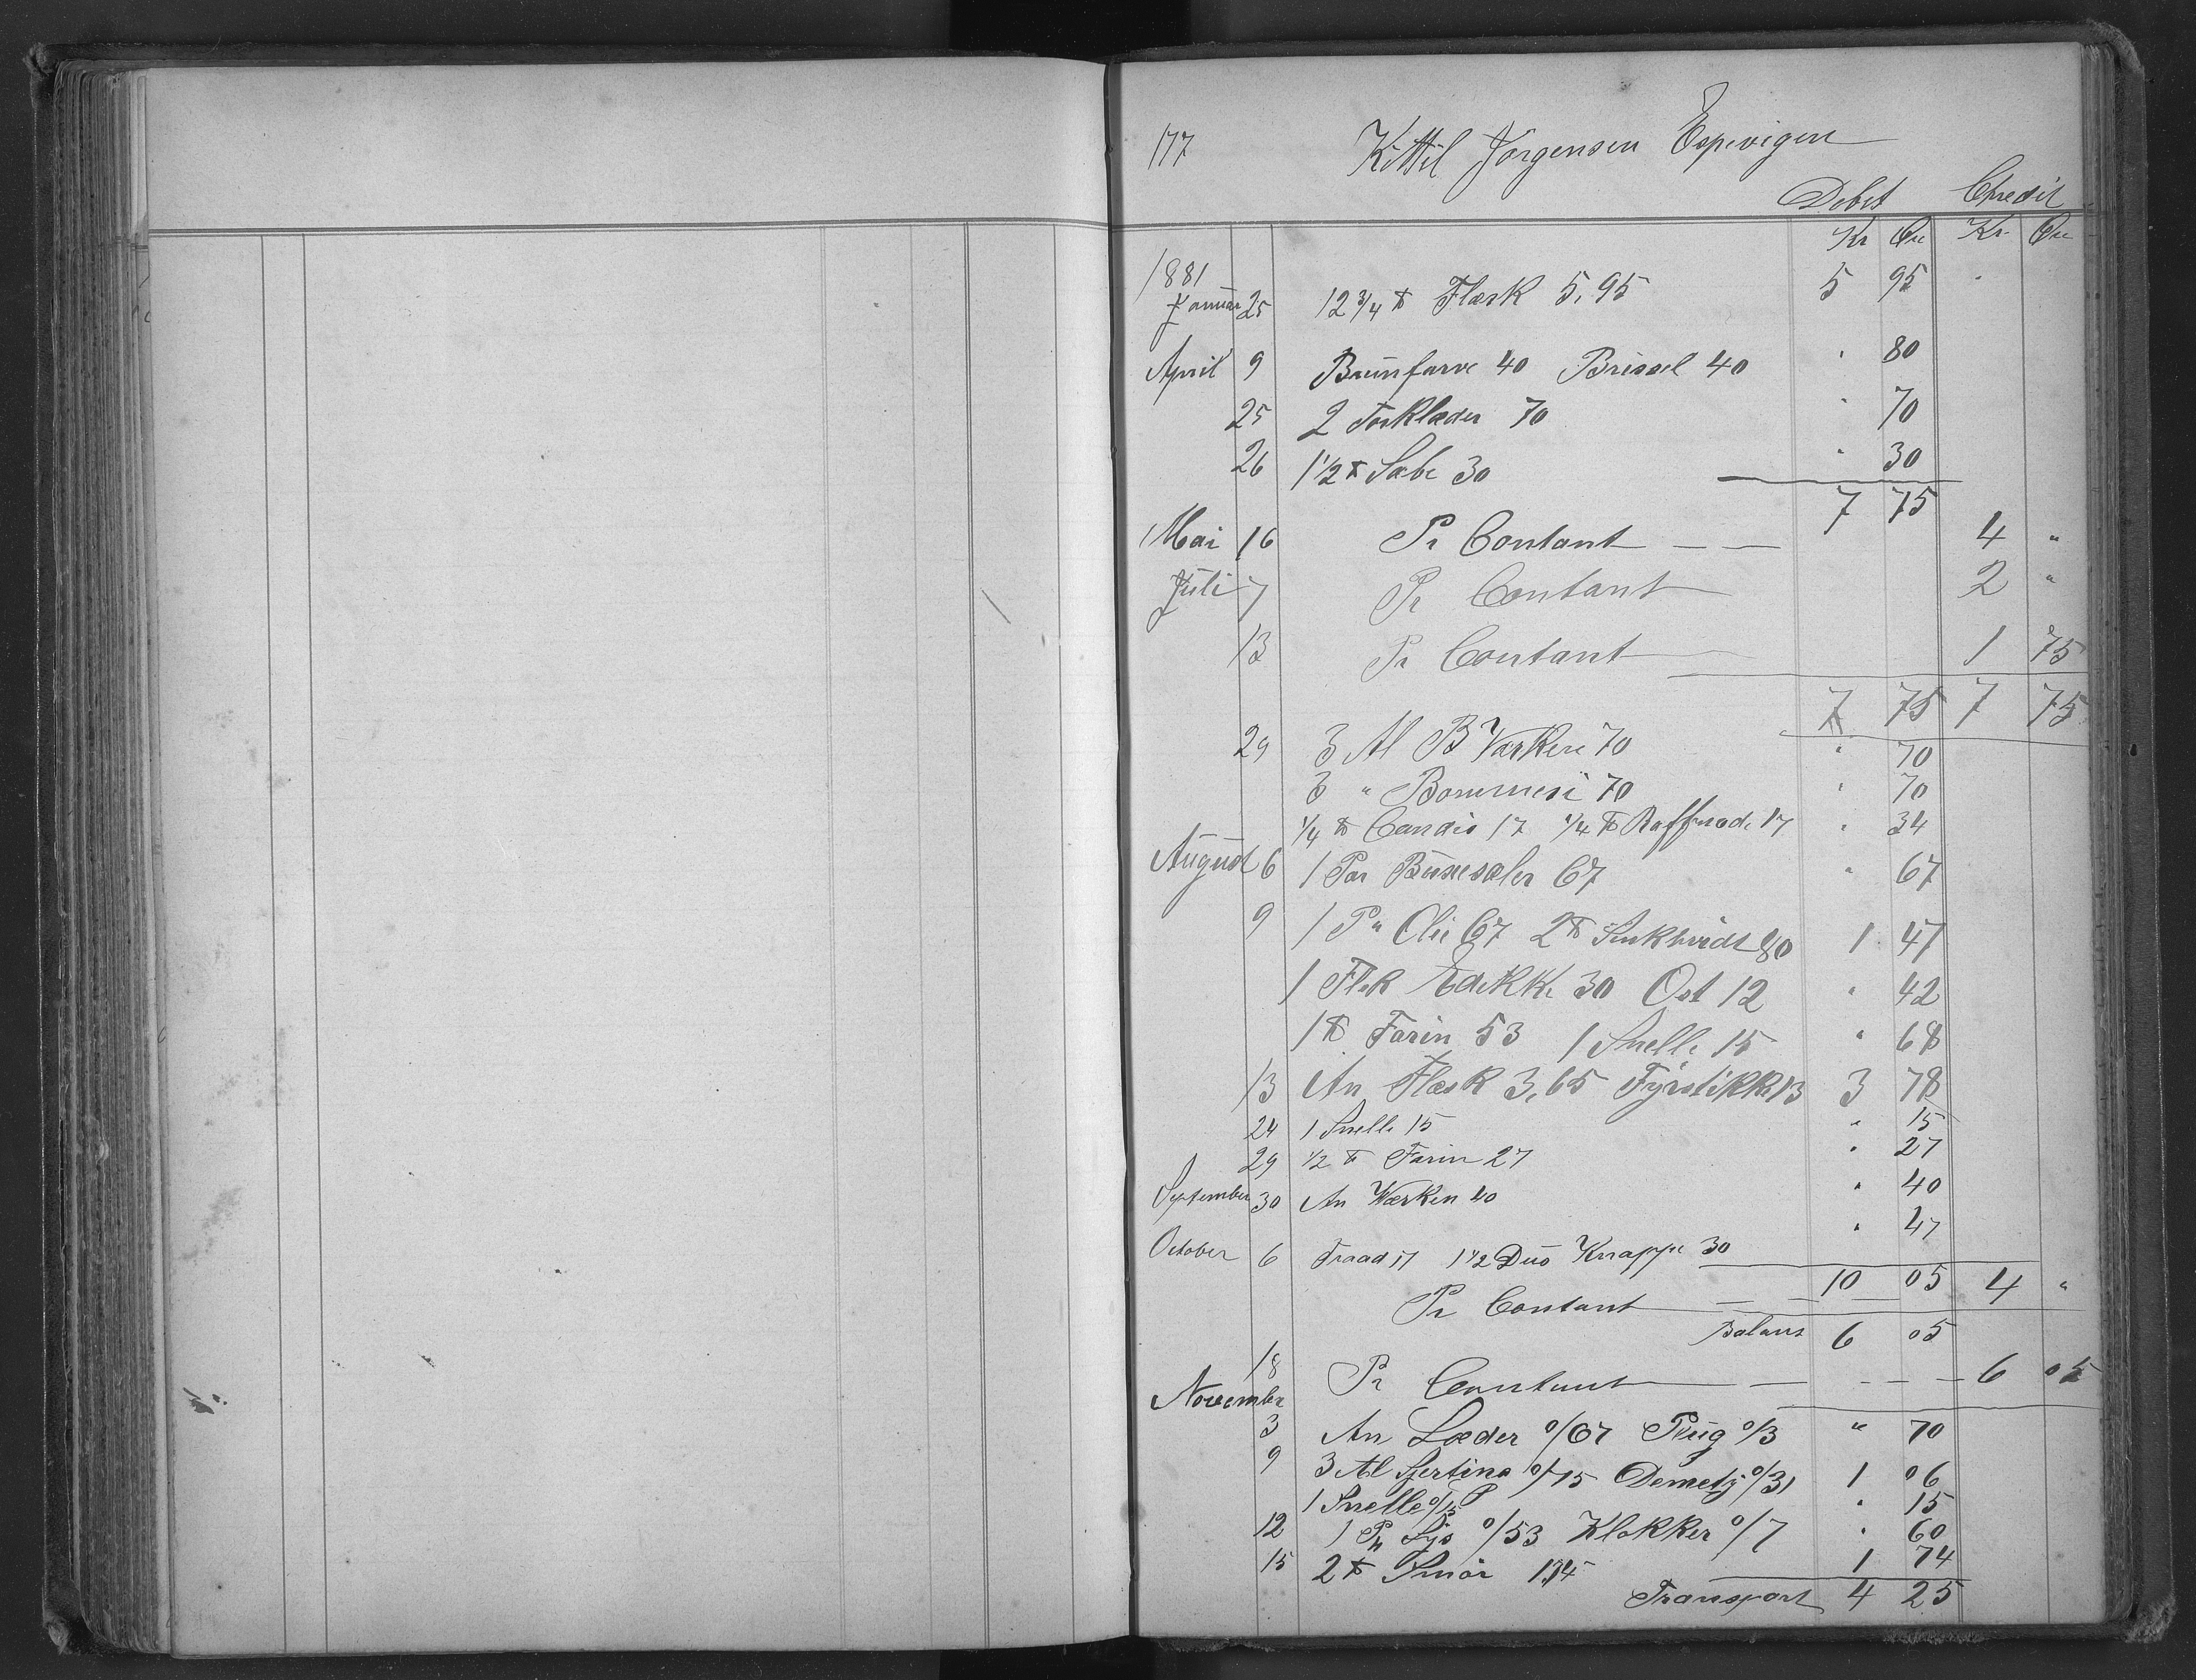 177 Kittil Jørgensen Espevigen
Debet Credit
Kr Øre Kr. Øre
1881
Januar 25 12 3/4 ℔ Flæsk 5,95 5 95
April 9 Brunfarve 40 Brissel 40 " 80
25 2 Forklæder 70 " 70
26 1 1/2 ℔ Sæbe 30 " 30
7 75
Mai 16 Pr Contant 4 "
Juli 7 Pr Contant 2 "
13 Pr Contant 1 75
7 75 7 75
29 3 Al B Værken 70 " 70
3 " Bommesi 70 " 70
1/4 ℔ Candis 17 1/4 ℔ Raffinade 17 " 34
August 6 1 Par Buxesæler 67 " 67
9 1 P Olie 67 2 ℔ 80 1 47
1 Flsk Edikke 30 Ost 12 " 42
1 ℔ Farin 53 1 Snelle 15 " 68
13 An Flæsk 3,65 Fyrstikker 13 3 78
24 1 Snelle 15 " 15
29 1/2 ℔ Farin 27 " 27
September 30 An Værken 40 " 40
October 6 Traad 17 1 1/2 Dus Knappe 30 " 47
10 05 4 "
Pr Contant
Balans 6 05
18 Pr Contant 6 05
November
3 An Læder 0/67 Pleig 0/3 " 70
9 3 Al Sjertina 0/75 0/31 1 06
1 Snelle 0/15 " 15
12 1 0/53 Klokker 0/7 " 60
15 2 ℔ Smør 1,74 1 74
Transport 4 25